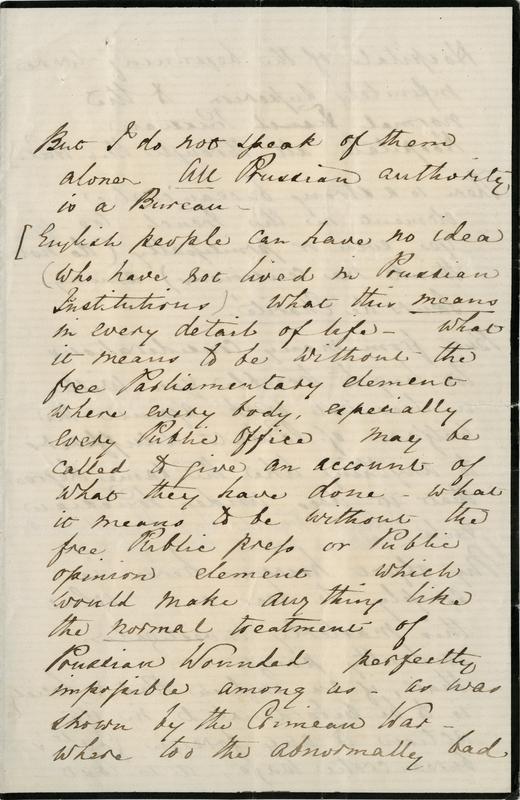 But I do not speak of them
alone. All Prussian authority
is a Bureau -
[English people can have no idea
(who have not lived in Prussian
Institutions) what this means
in every detail of life - what
it means to be without the
free Parliamentary element
where every body, especially
every Public Office may be
called to give an account of
what they have done - what
it means to be without the
free Public press or Public
opinion element which
would make any thing like
the normal treatment of
Prussian Wounded perfectly
impossible among us - as was
shown by the Crimean War -
where too the abnormally bad